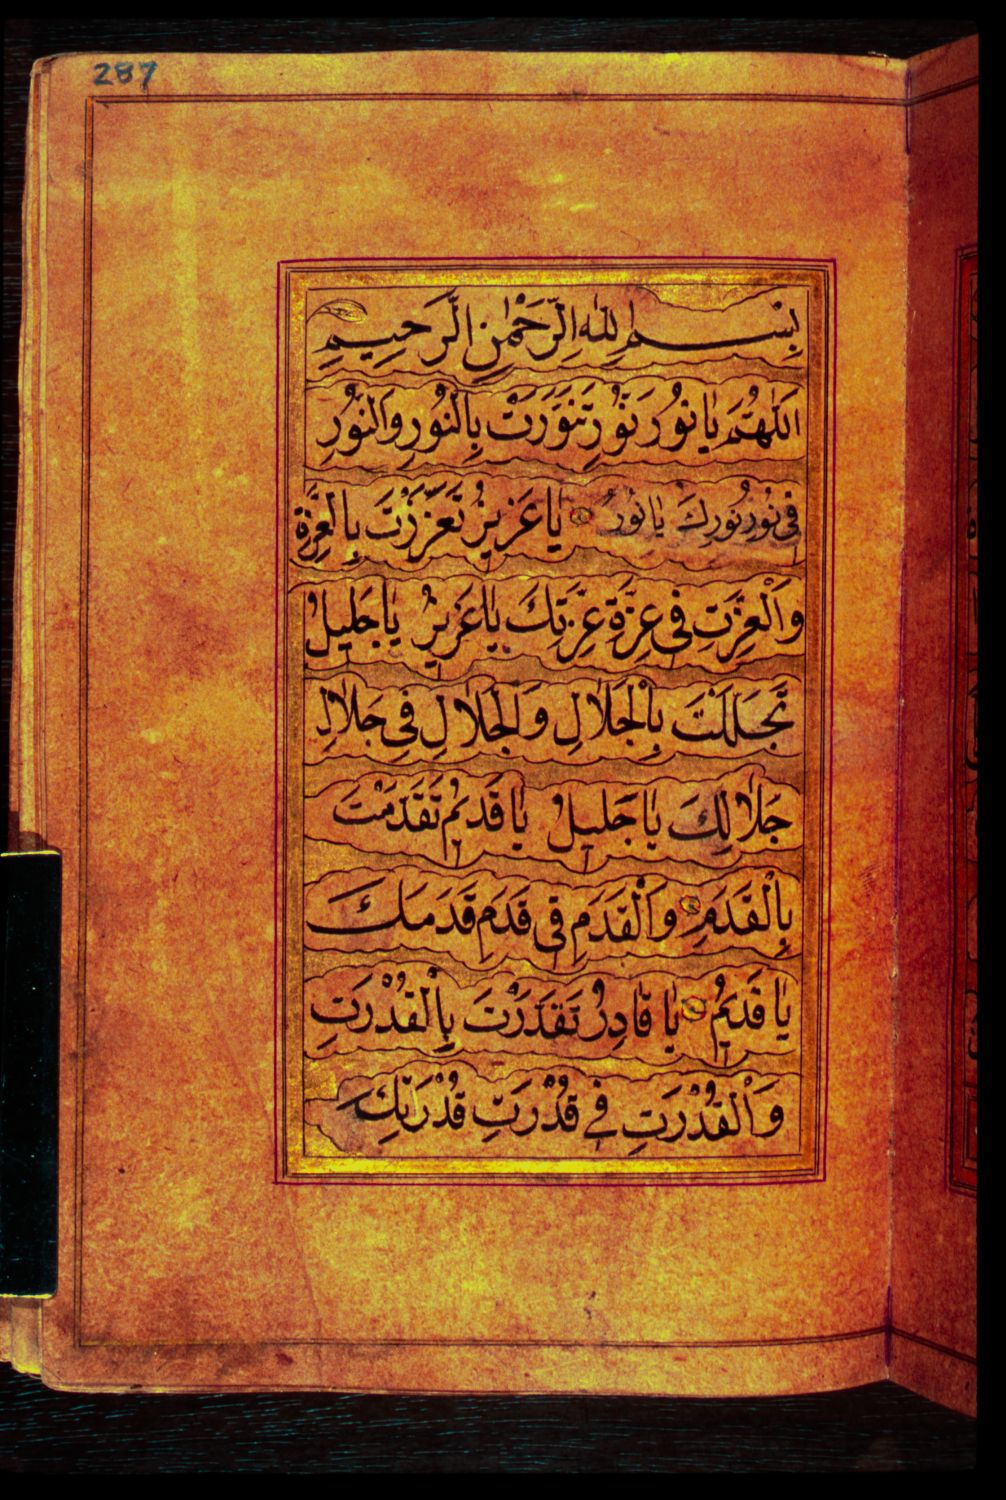 287
بِسْمِ اللّٰهِ الرَّحْمٰنِ الرَّحِيمِ
اَللّٰهُمَّ يَا نُورُ تَنَوَّرْتَ بِالنُّورِ وَالنُّورُ
فِى نُورِ نُورِكَ يَا نُورُ يَا عَزِيزُ تَعَزَّزْتَ بِالْعِزَّةِ
وَالْعِزَّتِ فِى عِزَّةِ عِزَّتِكَ يَا عَزِيزُ يَا جَلِيلُ
تَجَلَلْتَ بِالْجَلَالِ وَالْجَلَالِ فِى جَلَالِ
جَلَالِكَ يَا جَلِيلُ يَا قَدِيمُ تَقَدَّمْتَ
بِالْقَدَمِ وَالْقَدَمِ فِى قَدَمِ قَدَمِكَ
يَا قَدِيمُ يَا قَادِرُ تَقَدَّرْتَ بِالْقُدْرَتِ
وَالْقُدْرَتِ فِى قُدْرَتِ قُدْرَتِكَ